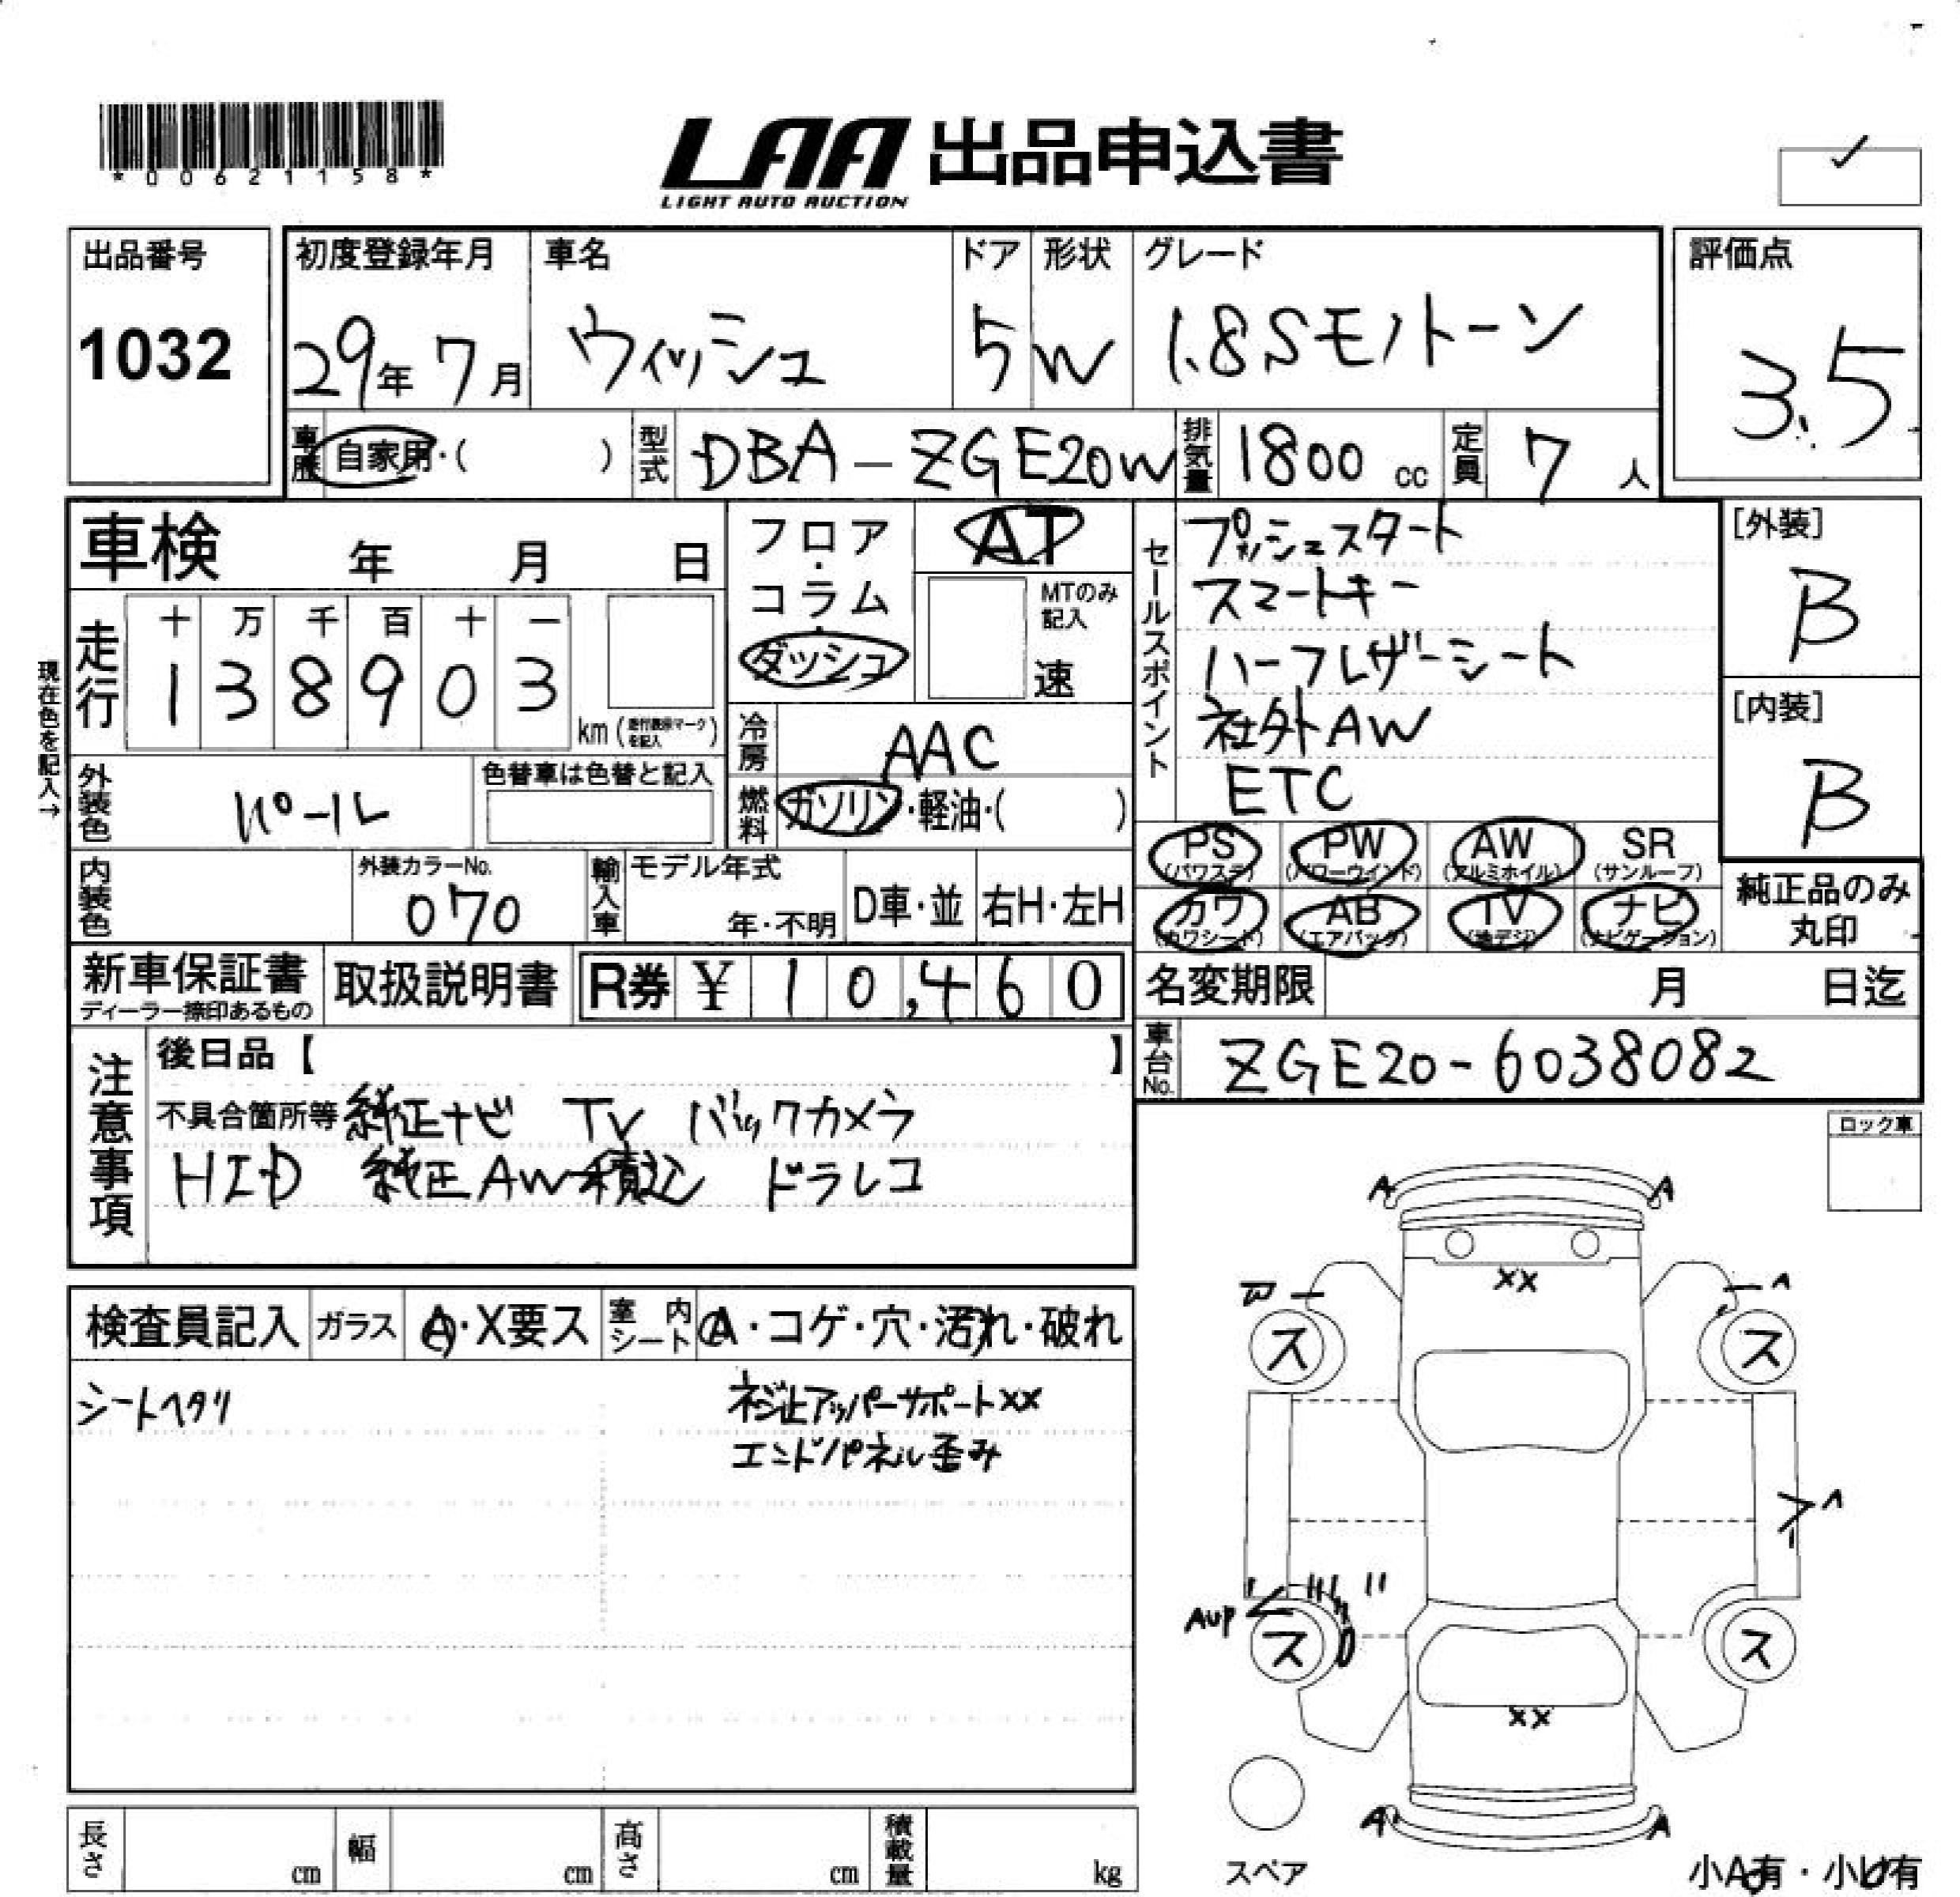 *00621158*
LAA 出品申込書
LIGHT AUTO AUCTION
出品番号
1032
初度登録年月
29年 7月
車名
ウィッシュ
ドア
5
形状
W
グレード
1.8Sモノトーン
評価点
3.5
車歴
自家用・( )
型式
DBA-ZGE20W
排気量
1800 cc
定員
7 人
車検 年 月 日
現在色を記入→
走行
十 万 千 百 十 一
1 3 8 9 0 3
km (走行距離マークを記入)
フロア・コラム・ダッシュ
AT
MTのみ記入
速
冷房
AAC
燃料
ガソリン・軽油・( )
外装色
パール
色替車は色替と記入
内装色
外装カラーNo.
070
輸入車
モデル年式
年・不明
D車・並
右H・左H
セールスポイント
プッシュスタート
スマートキー
ハーフレザーシート
社外AW
ETC
[外装]
B
[内装]
B
PS (パワステ) PW (パワーウインド) AW (アルミホイル) SR (サンルーフ)
カワ (カワシート) AB (エアバック) TV (地デジ) ナビ (ナビゲーション)
純正品のみ丸印
新車保証書
ディーラー捺印あるもの
取扱説明書
R券 ¥ 10,460
名変期限 月 日迄
車台No.
ZGE20-6038082
注意事項
後日品【 】
不具合箇所等 純正ナビ TV バックカメラ
HID 純正AW積込 ドラレコ
ロック車
検査員記入
ガラス
A・X要ス
室内シート
A・コゲ・穴・汚れ・破れ
シートヘタリ
ネジ止アッパーサポートXX
エンドパネル歪み
A A
XX
ス ス
Aup
ス ス
XX
A A
スペア
小A有・小U有
長さ cm
幅 cm
高さ cm
積載量 kg